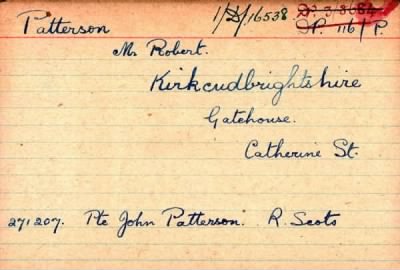 Patterson
1/D/16538
P. 116/P.
Mr Robert.
Kirkcudbrightshire
Gatehouse.
Catherine St.
271207. Pte John Patterson. R. Scots